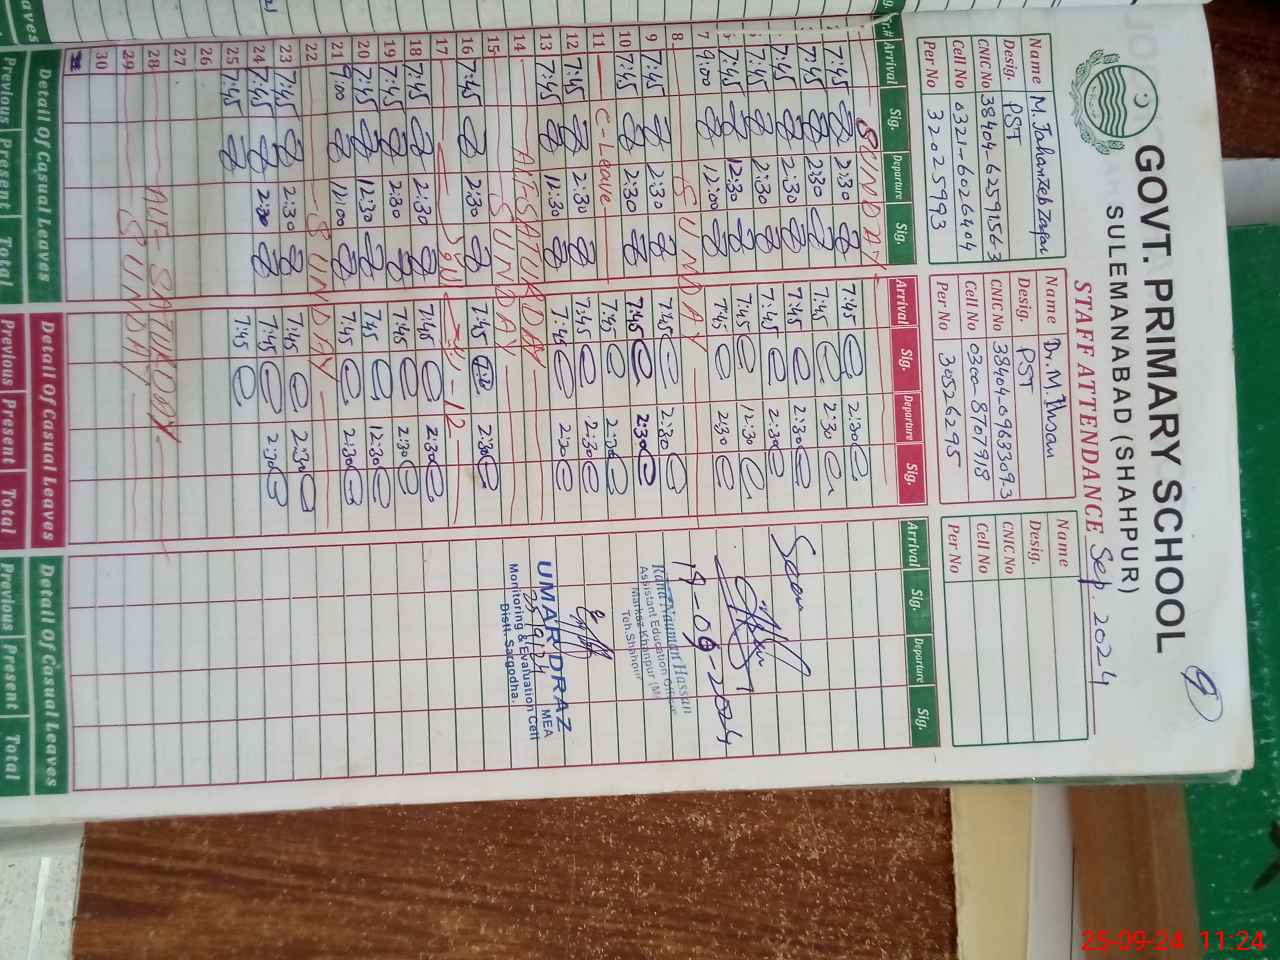 GOVT. PRIMARY SCHOOL
9
SULEMANABAD (SHAHPUR)
STAFF ATTENDANCE Sep. 2024
Name M. Jahanzeb Zafar
Desig. PST
CNIC No 38404-6259156-3
Cell No 0321-6026404
Per No 32025993
Name Dr. M. Ihsan
Desig. PST
CNIC No 38404-0963309.3
Cell No 0300-8707918
Per No 30526295
Name
Desig.
CNIC No
Cell No
Per No
Sr.# Arrival Sig. Departure Sig. Arrival Sig. Departure Sig. Arrival Sig. Departure Sig.
SUNDAY
7:45 2:30 7:45 2:30
7:45 2:30 7:45 2:30
7:45 2:30 7:45 2:30
7:45 2:30 7:45 2:30
7:45 12:30 7:45 12:30
7 9:00 12:00 7:45 2:30
8 SUNDAY
9 7:45 2:30 7:45 2:30
10 7:45 2:30 7:45 2:30
11 C-Leave 7:45 2:30
12 7:45 2:30 7:45 2:30
13 7:45 12:30 7:45 2:30
14 ALT-SATURDAY
15 SUNDAY
16 7:45 2:30 7:45 2:30
17 12
18 7:45 2:30 7:45 2:30
19 7:45 2:30 7:45 2:30
20 7:45 12:30 7:45 12:30
21 9:00 12:00 7:45 2:30
22 SUNDAY
23 7:45 2:30 7:45 2:30
24 7:45 2:30 7:45 2:30
25 7:45 7:45
26
27
28 ALT-SATURDAY
29 SUNDAY
30
Seen
19-09-2024
Rana Nauman Hassan
Assistant Education Officer
Markaz Khanpur (M
Teh. Shahpur
UMAR DRAZ
MEA
25/9/24
Monitoring & Evaluation Cell
Distt. Sargodha.
Detail Of Casual Leaves Detail Of Casual Leaves Detail Of Casual Leaves
Previous Present Total Previous Present Total Previous Present Total
25-09-24 11:24